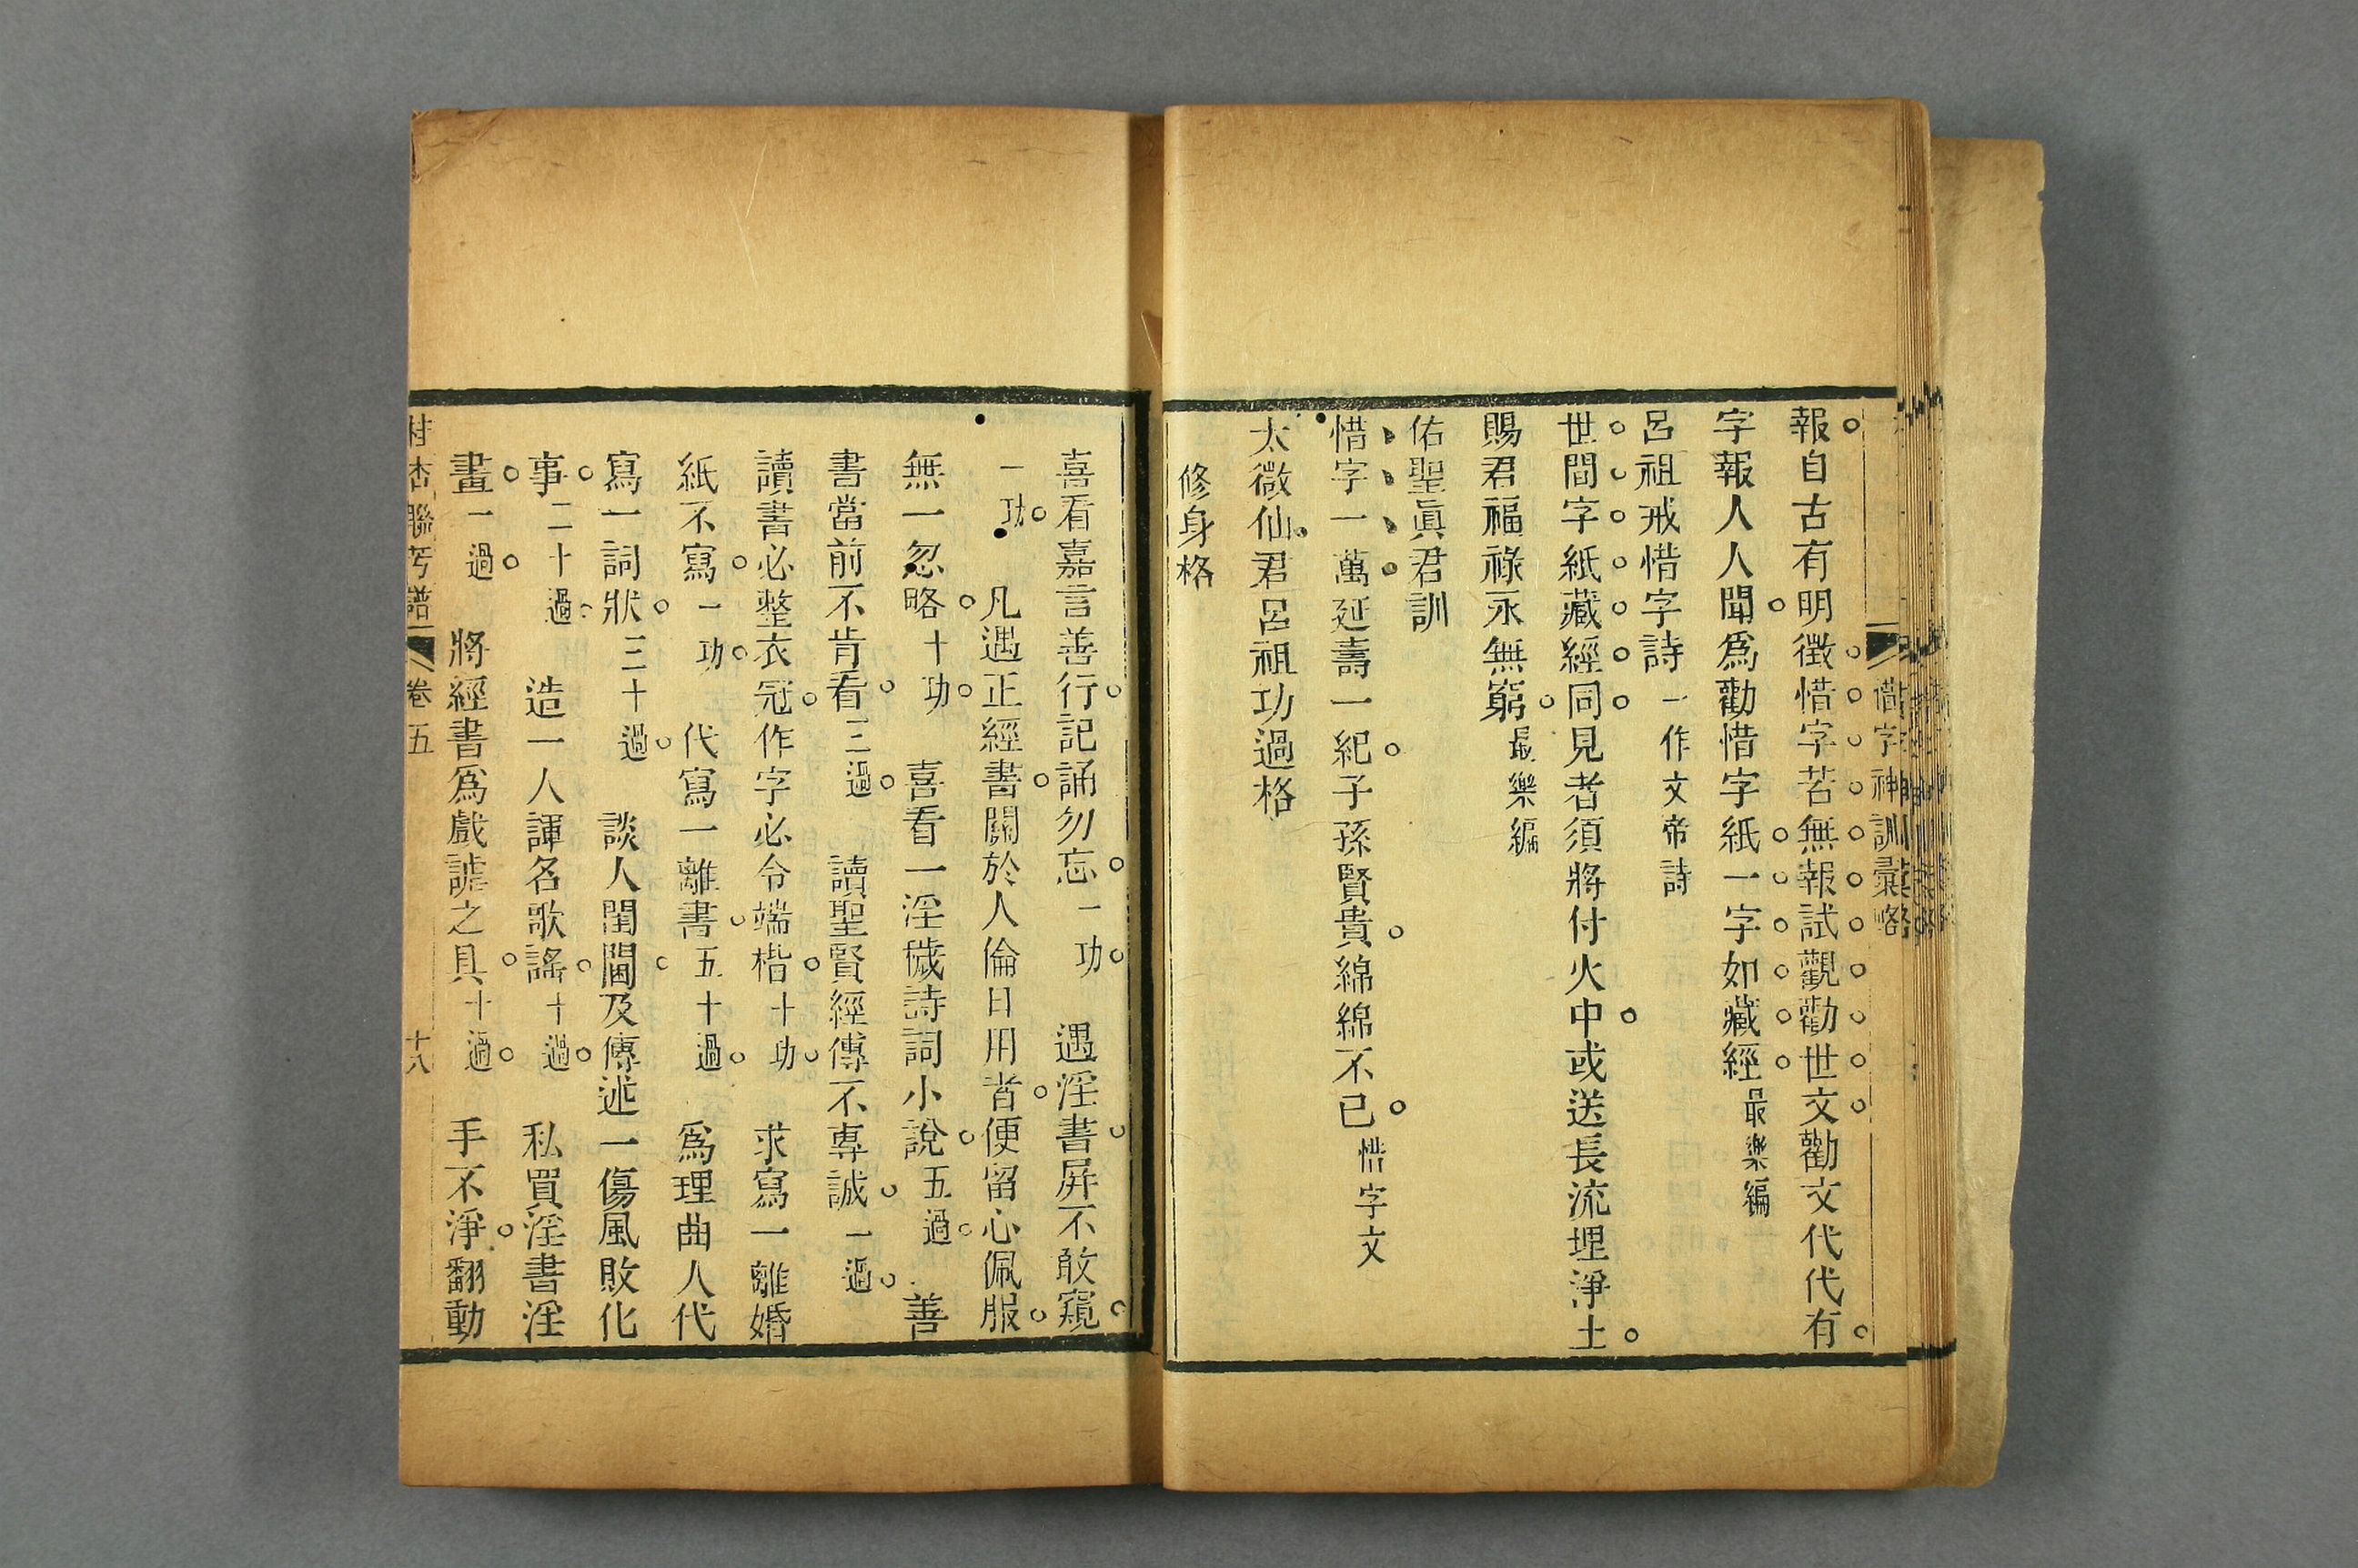 惜字神訓彙略
報自古有明徵惜字若無報試觀勸世文勸文代代有
字報人人聞爲勸惜字紙一字如藏經最樂編
呂祖戒惜字詩一作文帝詩
世間字紙藏經同見者須將付火中或送長流埋淨土
賜君福祿永無窮最樂編
佑聖眞君訓
惜字一萬延壽一紀子孫賢貴綿綿不已惜字文
太微仙君呂祖功過格
修身格
喜看嘉言善行記誦勿忘一功　遇淫書屏不敢窺
一功　凡遇正經書關於人倫日用者便留心佩服
無一忽略十功　喜看一淫穢詩詞小說五過　善
書當前不肯看三過　讀聖賢經傳不專誠一過
讀書必整衣冠作字必令端楷十功　求寫一離婚
紙不寫一功　代寫一離書五十過　爲理曲人代
寫一詞狀三十過　談人閨閫及傳述一傷風敗化
事二十過　造一人諢名歌謠十過　私買淫書淫
畫一過　將經書爲戲謔之具十過　手不淨翻動
卷五　十八